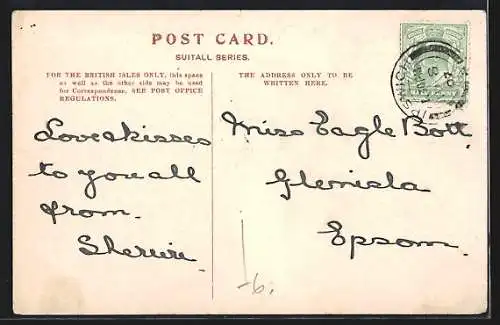 POST CARD.
SUITALL SERIES.
FOR THE BRITISH ISLES ONLY, this space
as well as the other side may be used
for Correspondence. SEE POST OFFICE
REGULATIONS.
THE ADDRESS ONLY TO BE
WRITTEN HERE.
Love & kisses
to you all
from.
Miss Eagle Bott
Glenisla
Epsom.
-6.